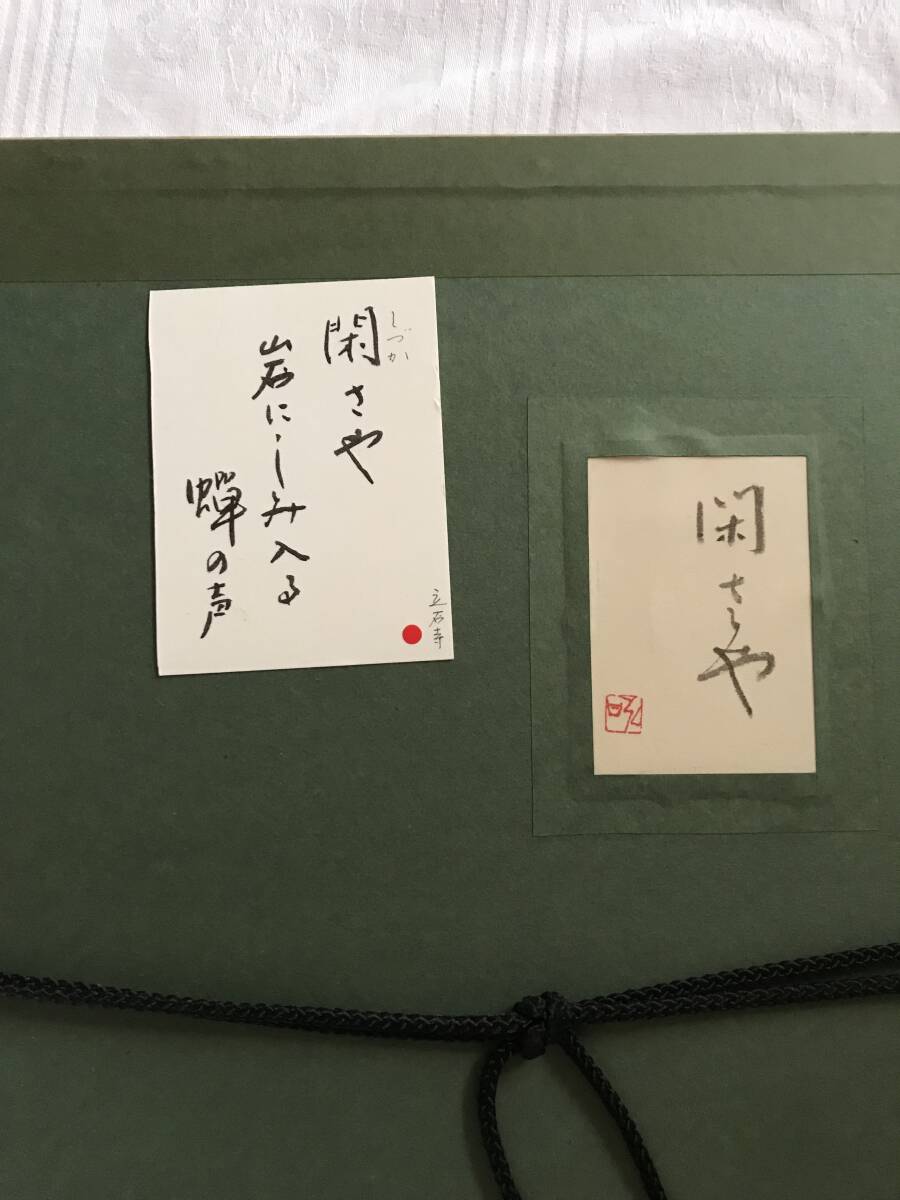 閑さや
しづか
岩にしみ入る
蝉の声
立石寺
閑さや